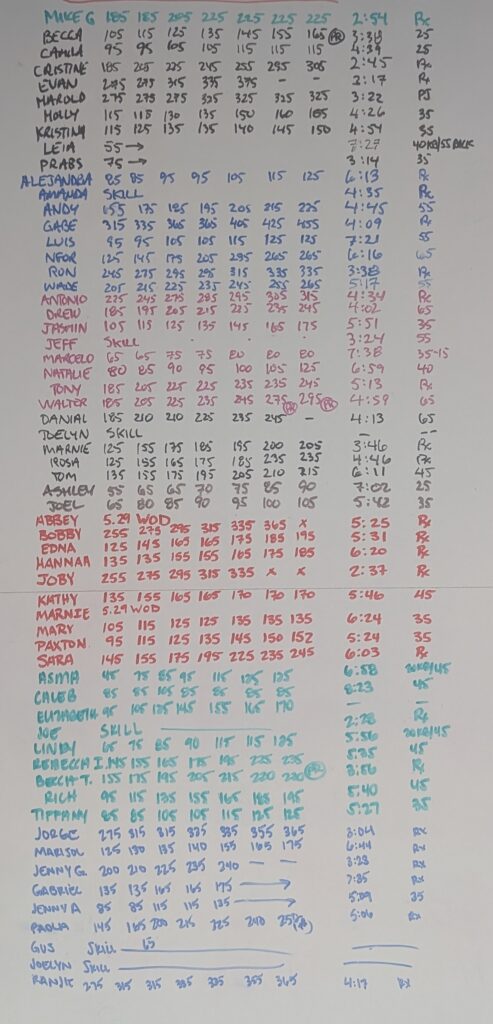 MIKE G 185 185 205 225 225 225 225 2:54 Rx
BECCA 105 115 125 135 145 155 165 PR 3:38 25
CAMILA 95 95 105 105 115 115 115 4:39 25
CRISTINE 185 205 225 245 255 295 305 2:45 Rx
EVAN 275 295 315 335 375 - - 2:17 Rx
HAROLD 275 275 275 325 325 325 325 3:22 PJ
HOLLY 115 115 130 135 150 160 185 4:26 35
KRISTINA 115 125 135 135 140 145 150 4:54 35
LEIA 55 → 7:27 40KB/55BACK
PRABS 75 → 3:14 35
ALEJANDRA 85 85 95 95 105 115 125 6:13 Rx
AMANDA SKILL 4:35 Rx
ANDY 155 175 185 195 205 215 225 4:45 55
GABE 315 335 365 365 405 425 455 4:09 Rx
LUIS 95 95 105 105 115 125 125 7:21 55
NFOR 125 145 175 205 235 265 265 6:16 65
RON 245 275 295 295 315 335 335 3:38 Rx
WADE 205 215 225 235 245 255 265 5:17 55
ANTONIO 225 245 275 285 295 305 315 4:34 Rx
DREW 185 195 205 215 225 235 245 4:02 65
JASMIN 105 115 125 135 145 165 175 5:51 35
JEFF SKILL 3:24 55
MARCELO 65 65 75 75 80 80 80 7:38 35-15
NATALIE 80 85 90 95 100 105 125 6:59 40
TONY 185 205 225 225 235 235 245 5:13 Rx
WALTER 185 205 225 235 245 275 PR 295 PR 4:59 65
DANIAL 185 210 210 225 235 245 - 4:13 65
JOELYN SKILL - --
MARNIE 125 155 175 185 195 200 205 3:46 Rx
ROSIA 125 155 165 175 185 235 235 4:46 Rx
TOM 135 155 175 195 205 210 215 6:11 45
ASHLEY 55 65 65 70 75 85 90 7:02 25
JOEL 65 80 85 90 95 100 105 5:42 35
ABBEY 5.29 WOD 5:25 Rx
BOBBY 255 275 295 315 335 365 x 5:31 Rx
EDNA 125 145 165 165 175 185 195 6:20 Rx
HANNAH 135 135 155 155 165 175 185
JOBY 255 275 295 315 335 x x 2:37 Rx
KATHY 135 155 165 165 170 170 170 5:46 45
MARNIE 5.29 WOD
MARY 105 115 125 125 135 135 135 6:24 35
PAXTON 95 115 125 135 145 150 152 5:24 35
SARA 145 155 175 195 225 235 245 6:03 Rx
ASMA 45 75 85 95 115 125 125 6:58 20KB/45
CALEB 85 85 105 85 85 85 85 8:23 45
ELIZABETH 95 105 125 145 155 165 170 - -
JOE SKILL 2:28 Rx
LINDY 65 75 85 90 115 115 125 5:56 20KB/45
REBECCA I. 145 155 165 175 195 225 235 5:35 45
BECCA T. 155 175 195 205 215 220 230 PR 3:56 Rx
RICH 95 115 135 155 165 185 195 5:40 45
TIFFANY 85 85 105 105 115 125 125 5:27 35
JORGE 275 315 315 335 335 355 365 3:04 Rx
MARISOL 125 130 135 140 155 165 175 6:44 Rx
JENNY G. 200 210 225 235 240 - - 3:23 Rx
GABRIEL 135 135 165 165 175 → 7:35 Rx
JENNY A 85 85 115 115 135 → 5:09 35
PAOLA 145 165 200 215 225 240 5:06 Rx
GUS Skill 65
JOELYN Skill
RANJIT 275 315 315 335 335 355 365 4:17 Rx